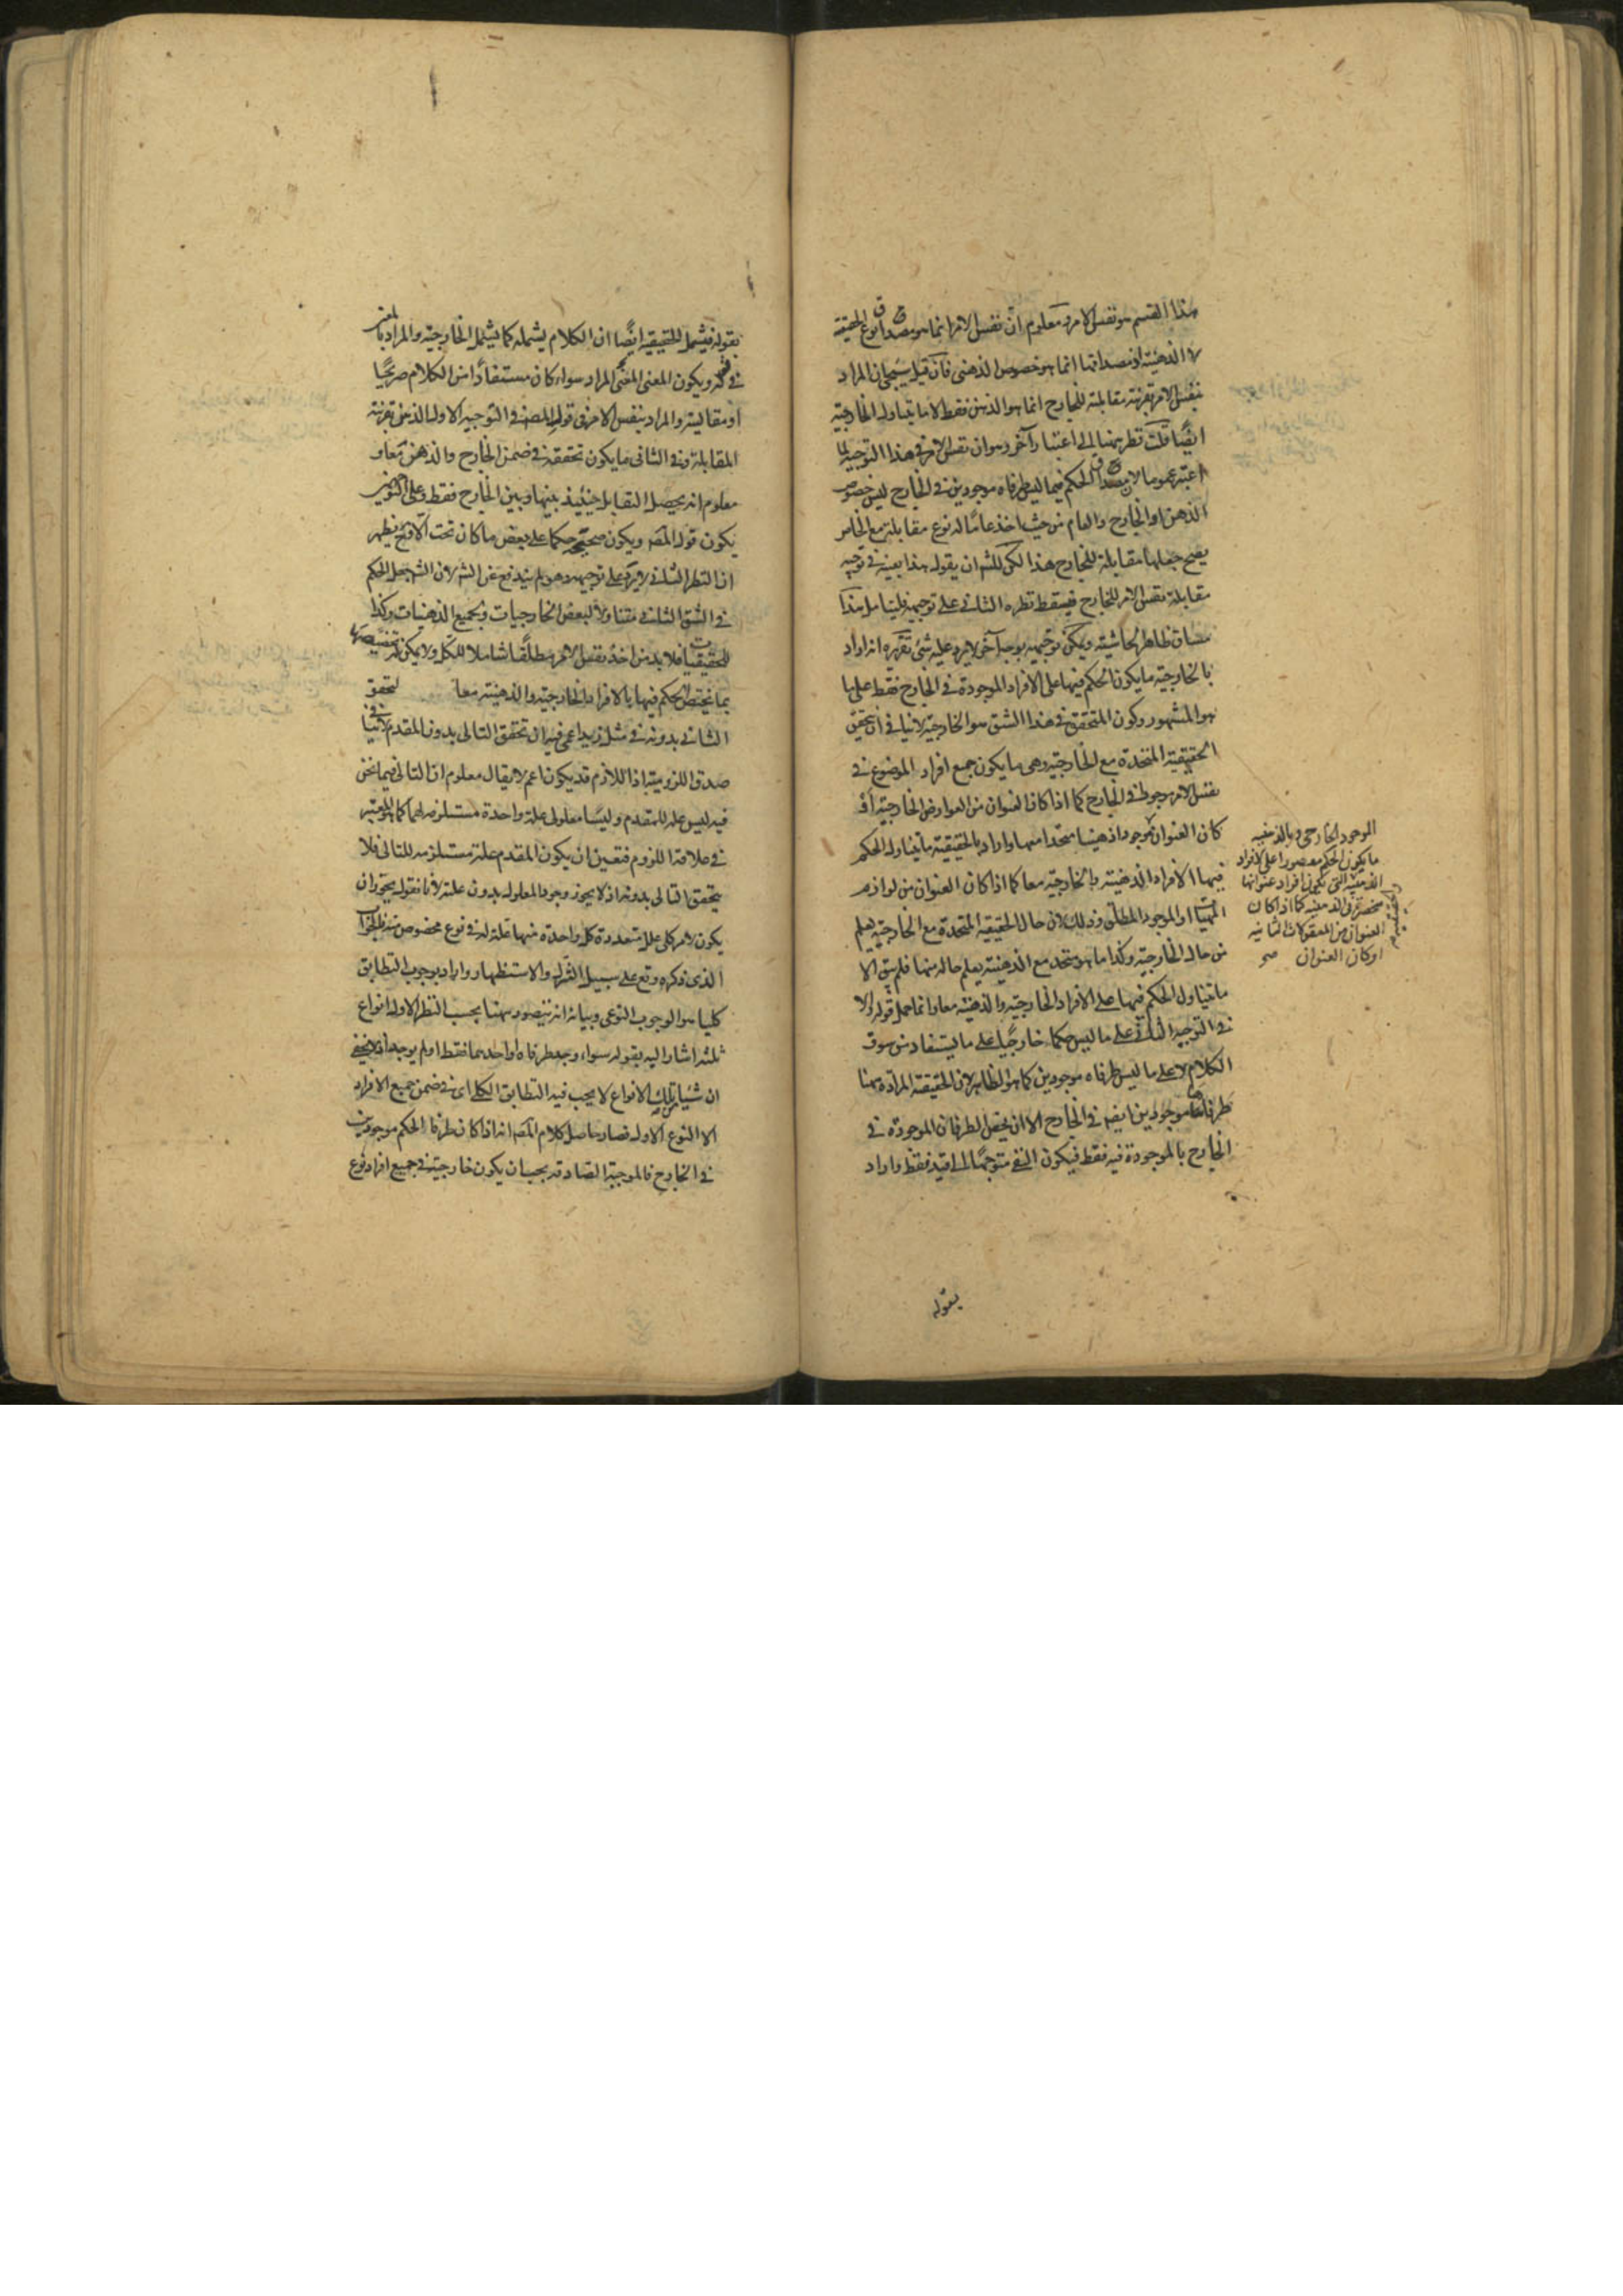 هذا القسم هو نفس الامر ومعلوم ان نفس الامر انما هو مصداق نوع الحقيقة
لا الذهنية اذ مصداقها انما هو خصوص الذهنى فان قيل سيجئ ان المراد
بنفس الامر بقرينة مقابلته للخارج انما هو الذهن فقط لا ما يتناوله الخارجية
ايضا قلت نظر هنا الى اعتبار آخر وهو ان نفس الامر فى هذا التوجيه لما
اعتبر عموما لان مصداق الحكم فيما ليس طرفاه موجودين فى الخارج ليس خصوص
الذهن او الخارج والعام من حيث اخذ عاما له نوع مقابلة مع الخاص
يصح جعلها مقابلة للخارج هذا لكن للش ان يقول هذا بعينه فى توجيه
مقابلة نفس الامر للخارج فيسقط نظره الثانى على توجيهه فليتامل هذا
مساق ظاهر الحاشية ويمكن توجيهه بوجه آخر لا يرد عليه شئ تقريره انه اراد
بالخارجية ما يكون الحكم فيها على الافراد الموجودة فى الخارج فقط على ما
هو المشهور وكون المتحقق فى هذا الشق هو الخارجية لا ينافى ان يتحقق
الحقيقية المتحدة مع الخارجية وهى ما يكون جميع افراد الموضوع فى
نفس الامر موجودا فى الخارج كما اذا كان العنوان من العوارض الخارجية او
كان العنوان موجودا ذهنيا متحدا معها واراد بالحقيقية ما يتناول الحكم
فيها الافراد الذهنية والخارجية معا كما اذا كان العنوان من لوازم
المهيات او الموجود المطلق وذلك لان حال الحقيقية المتحدة مع الخارجية يعلم
من حال الخارجية وكذا ما هو متحد مع الذهنية يعلم حاله منها فلم يبق الا
ما يتناول الحكم فيها على الافراد الخارجية والذهنية معا وانما حمل قوله والا
فى التوجيه الثانى على ما ليس حكما خارجيا على ما يستفاد من سوق
الكلام لا على ما ليس طرفاه موجودين كما هو الظاهر لان الحقيقة المرادة هنا
طرفاها موجودين ايضا فى الخارج الا ان يخص الطرفان الموجودة فى
الخارج بالموجودة فيه فقط فيكون النفى متوجها الى قيد فقط واراد
الموجود الخارجى وبالذهنية
ما يكون الحكم مقصورا على الافراد
الذهنية التى يكون افراد عنوانها
منحصرة فى الذهنية كما اذا كان
العنوان من المعقولات الثانية
او كان العنوان صح
بقوله
بقوله فيشمل الحقيقية ايضا ان الكلام يشمله كما يشمل الخارجية والمراد بالمعنى
فى قوله ويكون المعنى المعنى المراد سواء كان مستفادا من الكلام صريحا
او مقايسة والمراد بنفس الامر فى قول المصنف فى التوجيه الاول الذهن بقرينة
المقابلة وفى الثانى ما يكون تحققه فى ضمن الخارج والذهن معا و
معلوم انه يحصل التقابل حينئذ بينها وبين الخارج فقط وعلى التوجيهين
يكون قول المصنف ويكون صحيحه حكما على بعض ما كان تحت الا وقع فيظهر
ان النظر الثانى لا يرد على توجيهه وهو لم يندفع عن الش لان الش جعل الحكم
فى الشق الثانى متناولا لبعض الخارجيات ولجميع الذهنيات وكذا
الحقيقيات فلا بد من اخذ نفس الامر مطلقا شاملا للكل ولا يمكن تخصيصه
بما يختص الحكم فيها بالافراد الخارجية والذهنية معا لتحقق
الثانى بدونه فى مثل زيد اعمى فيه ان تحقق التالى بدون المقدم لا ينافى
صدق اللزومية اذ اللازم قد يكون اعم لا يقال معلوم ان التالى فيما نحن
فيه ليس علة للمقدم وليسا معلولى علة واحدة مستلزمة لهما كما هو المعتبر
فى علاقة اللزوم فتعين ان يكون المقدم علة مستلزمة للتالى فلا
يتحقق التالى بدونه اذ لا يجوز وجود المعلول بدون علته لانا نقول يجوز ان
يكون لامر كلى علل متعددة كل واحدة منها علة له فى نوع مخصوص منه فالجواب
الذى ذكره وقع على سبيل التنزل والاستظهار واراد بوجوب التطابق
كليا هو الوجوب النوعى وبيانه انه يتصور ههنا بحسب النظر الاول انواع
ثلثة اشار اليه بقوله سواء وجد طرفاه او احدهما فقط او لم يوجد اولا يخفى
ان شيئا من تلك الانواع لا يجب فيه التطابق الكلى اى فى ضمن جميع الافراد
الا النوع الاول فصار حاصل كلام المصنف انه اذا كان طرفا الحكم موجودين
فى الخارج فالموجبة الصادقة يجب ان يكون خارجية فى جميع افراد نوع